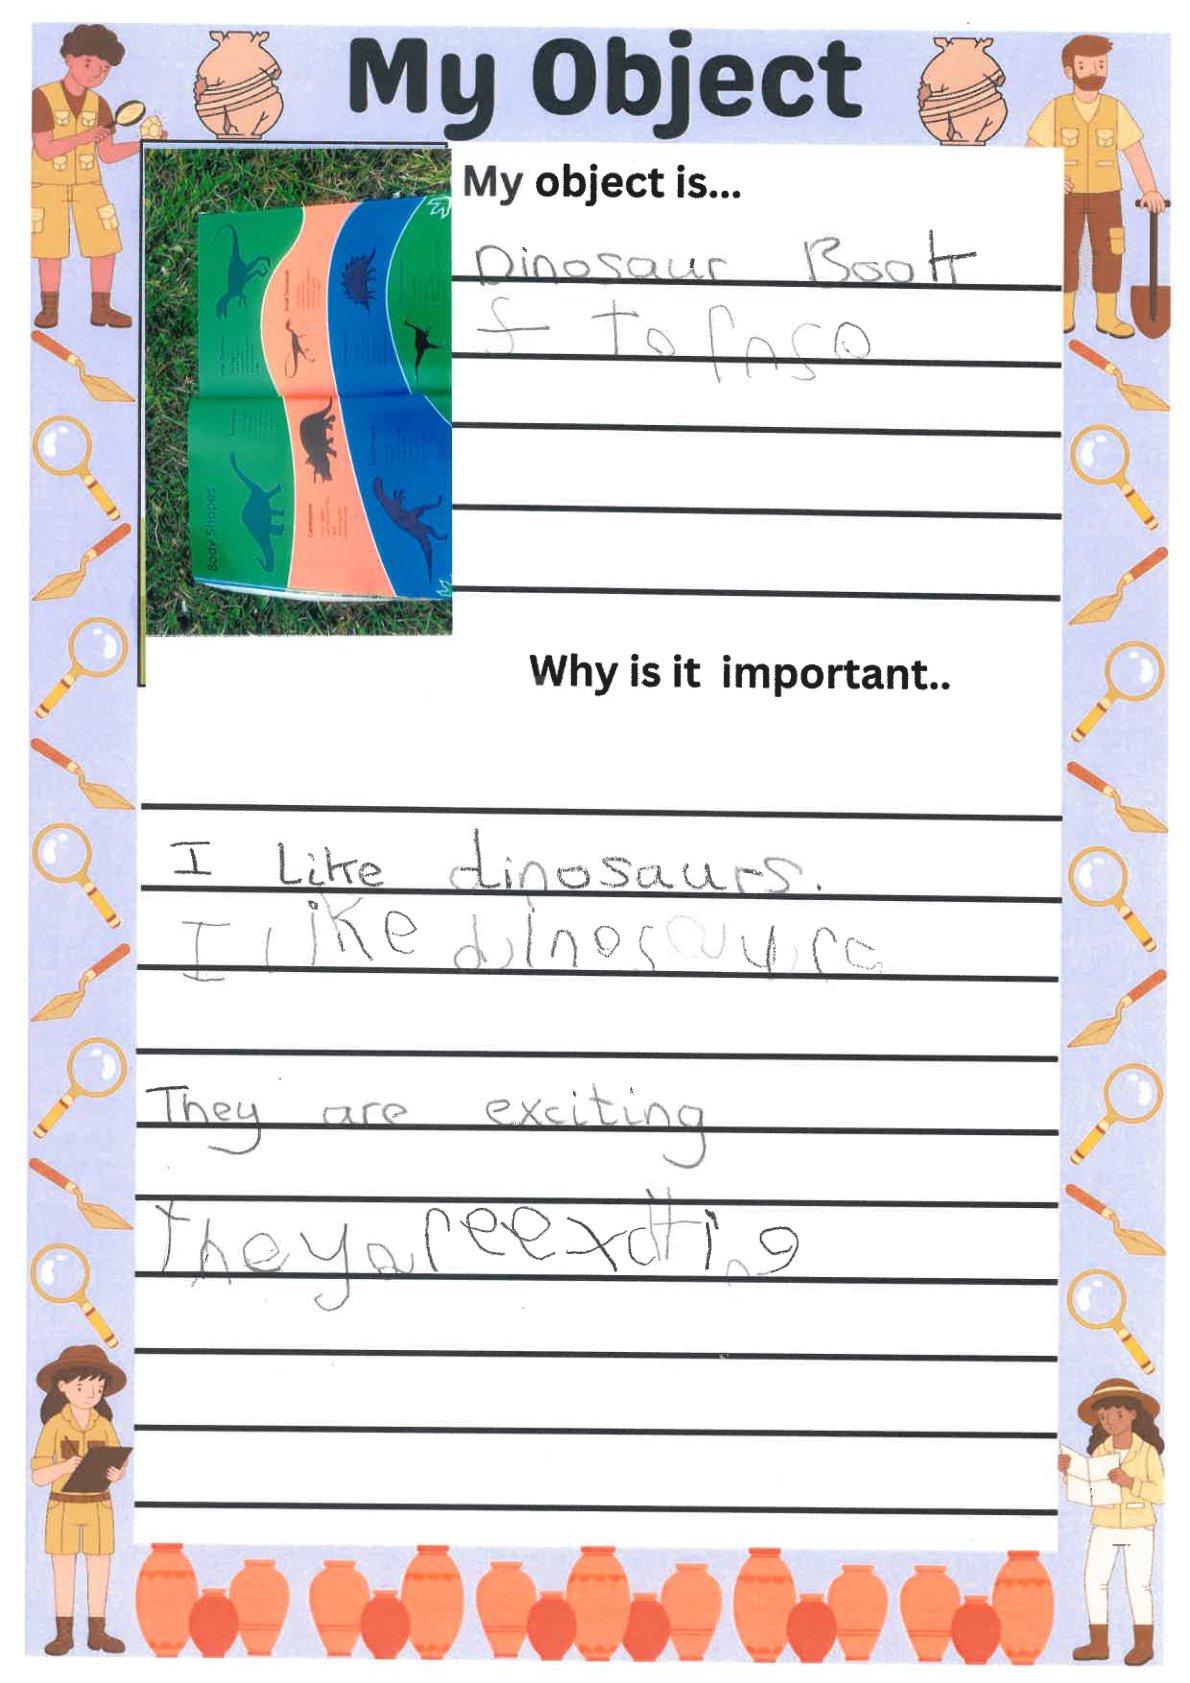 My Object
My object is...
Dinosaur Book
Body Shapes
Why is it important..
I Like dinosaurs.
I like dinosaurs
They are exciting
They are exciting